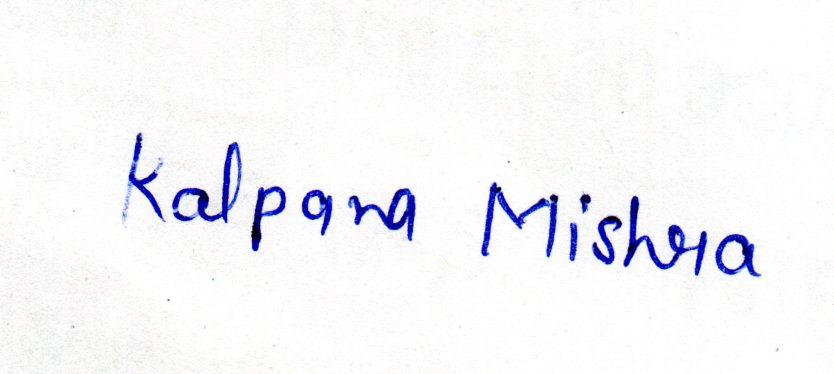 Kalpana Mishra